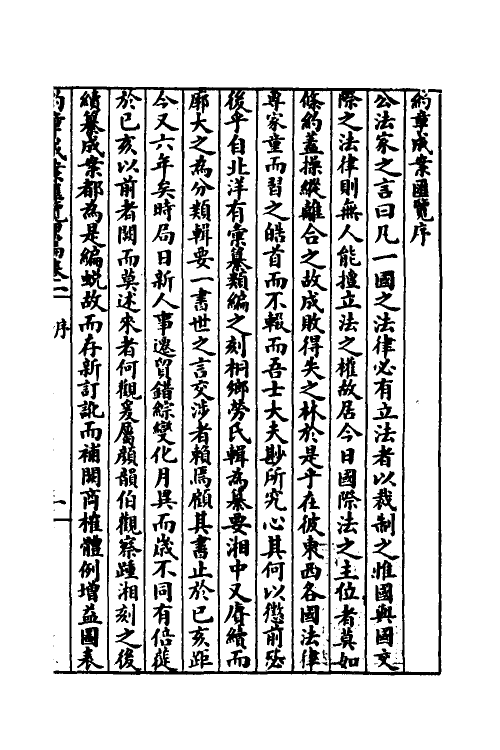 約章成案匯覽序
公法家之言曰凡一國之法律必有立法者以裁制之惟國與國交
際之法律則無人能擅立法之權故居今日國際法之主位者莫如
條約蓋操縱離合之故成敗得失之林於是乎在彼東西各國法律
專家童而習之皓首而不輟而吾士大夫尟所究心其何以懲前毖
後乎自北洋有彙纂類編之刻桐鄉勞氏輯為纂要湘中又賡續而
廓大之為分類輯要一書世之言交涉者賴焉顧其書止於已亥距
今又六年矣時局日新人事遷貿錯綜變化月異而歲不同有倍蓰
於已亥以前者闕而莫述來者何觀爰屬顏韻伯觀察踵湘刻之後
續纂成案都為是編蛻故而存新訂訛而補闕商榷體例增益圖表
約章成案匯覽 序 一